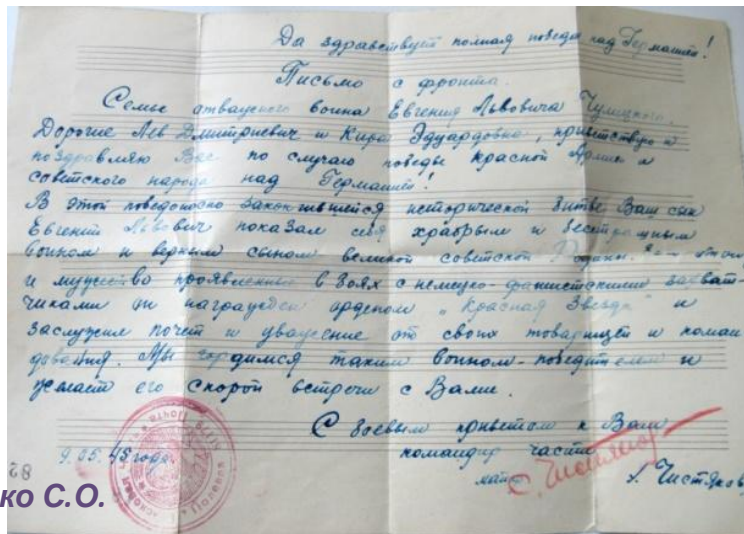 Да здравствует полная победа над Германией!
Письмо с фронта.
Семье отважного воина Евгения Львовича
Дорогие Лев Дмитриевич и Кира Эдуардовна, приветствую и
поздравляю Вас по случаю победы Красной Армии и
советского народа над Германией!
В этой победоносно закончившейся исторической битве Ваш сын
Евгений Львович показал себя храбрым и бесстрашным
воином и верным сыном великой советской Родины. За
и мужество проявленные в боях с немецко-фашистскими захват-
чиками он награжден орденом „Красная Звезда" и
заслужил почет и уважение от своих товарищей и коман
дования. Мы гордимся таким воином-победителем и
желаем его скорой встречи с Вами.
С боевым приветом к Вам
9.05.45 года. командир части
Чистяков
82
ко С.О.